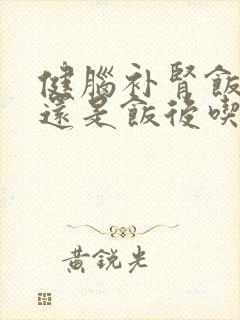 健腦补腎飯
還是飯後喫
黃銳光